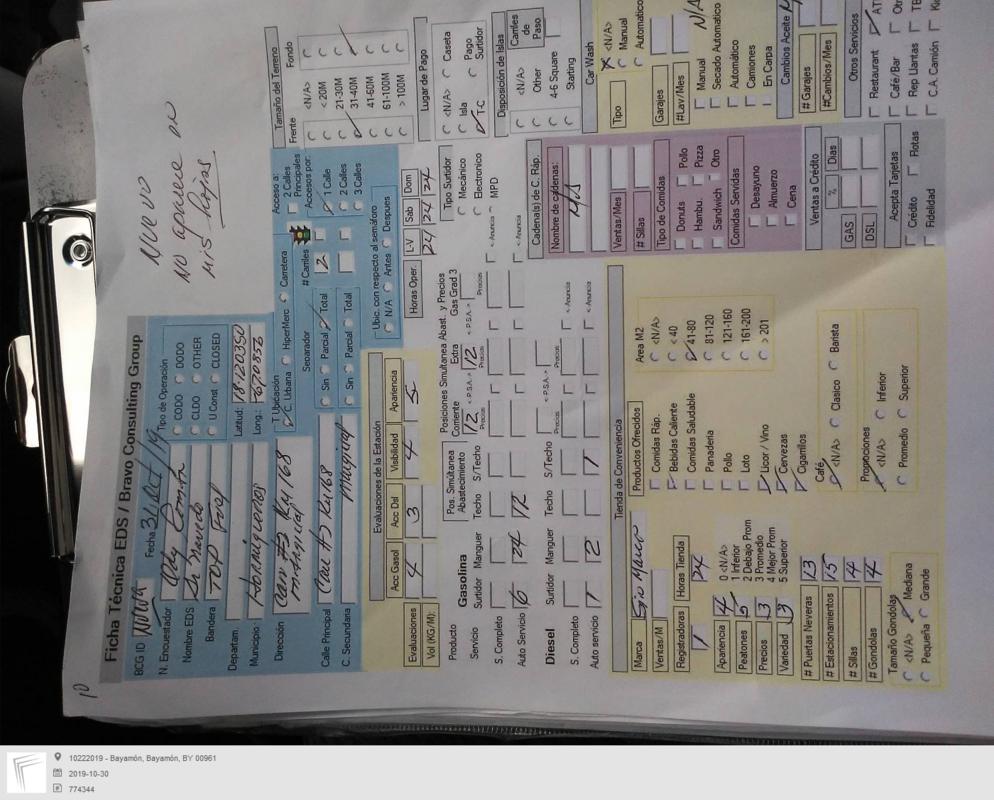 10
Nuevo
No aparece en
mis hojas
Ficha Técnica EDS / Bravo Consulting Group
BCG ID Nueva Fecha 31/oct/19
N. Encuestador
Nombre EDS
Bandera Total
Departam.
Municipio Hormigueros
Dirección Carr #3 Km 168
marginal
Calle Principal Carr #3 Km 168
C. Secundaria marginal
Tipo de Operación
CODO DODO
CLDO OTHER
U Const CLOSED
Latitud: 18.120350
Long.:
T Ubicación
C. Urbana HiperMerc Carretera
Separador # Carriles
Sin Parcial Total 2
Sin Parcial Total
Acceso a:
2 Calles
Principales
Accesos por:
1 Calle
2 Calles
3 Calles
Ubic. con respecto al semáforo
N/A Antes Después
Tamaño del Terreno
Frente Fondo
<N/A>
< 20M
21-30M
31-40M
41-60M
61-100M
> 100M
Evaluaciones de la Estación
Evaluaciones Acc Gasol Acc Dsl Visibilidad Apariencia
4 3 4 5
Vol (KG/M):
Horas Oper. L-V Sab Dom
24 24 24
Lugar de Pago
<N/A> Caseta
Isla Pago
T-C Surtidor
Producto Gasolina
Pos. Simultánea
Abastecimiento
Posiciones Simultanea Abast. y Precios
Corriente Extra Gas Grad 3
Servicio Surtidor Manguer Techo S/Techo
12 12
Precios < P.S.A. > Precios < P.S.A. > Precios
S. Completo
Auto Servicio 6 24 12
< Anuncia
< Anuncia
Tipo Surtidor
Mecánico
Electronico
MPD
Disposición de Islas
<N/A>
Other
4-6 Square
Starting
Carriles
de
Paso
Diesel Surtidor Manguer Techo S/Techo
S. Completo
Auto servicio 1 2 1
Precios < P.S.A. >
< Anuncia
< Anuncia
Cadena(s) de C. Ráp.
Nombre de cadenas:
N/A
Ventas/Mes
# Sillas
Tipo de Comidas
Donuts Pollo
Hambu. Pizza
Sandwich Otro
Comidas Servidas
Desayuno
Almuerzo
Cena
Car Wash
Tipo Manual
Automatico
Garajes
#Lav/Mes N/A
Manual
Secado Automatico
Automático
Camiones
En Carpa
Tienda de Conveniencia
Marca Gio Marco
Ventas/M
Registradoras Horas Tienda
1 24
Apariencia 4
Peatones 5
Precios 3
Variedad 3
0 <N/A>
1 Inferior
2 Debajo Prom
3 Promedio
4 Mejor Prom
5 Superior
# Puertas Neveras 13
# Estacionamientos 15
# Sillas 4
# Gondolas 4
Tamaño Gondolas
<N/A> Mediana
Pequeña Grande
Productos Ofrecidos
Comidas Ráp.
Bebidas Caliente
Comidas Saludable
Panaderia
Pollo
Loto
Licor / Vino
Cervezas
Cigarrillos
Area M2
<N/A>
< 40
41-80
81-120
121-160
161-200
> 201
Café
<N/A> Clasico Barista
Promociones
<N/A> Inferior
Promedio Superior
Ventas a Crédito
% Dias
GAS
DSL
Acepta Tarjetas
Crédito Flotas
Fidelidad
Cambios Aceite
# Garajes
#Cambios/Mes
Otros Servicios
Restaurant
Café/Bar
Rep Llantas
C.A. Camión
10222019 - Bayamón, Bayamón, BY 00961
2019-10-30
774344